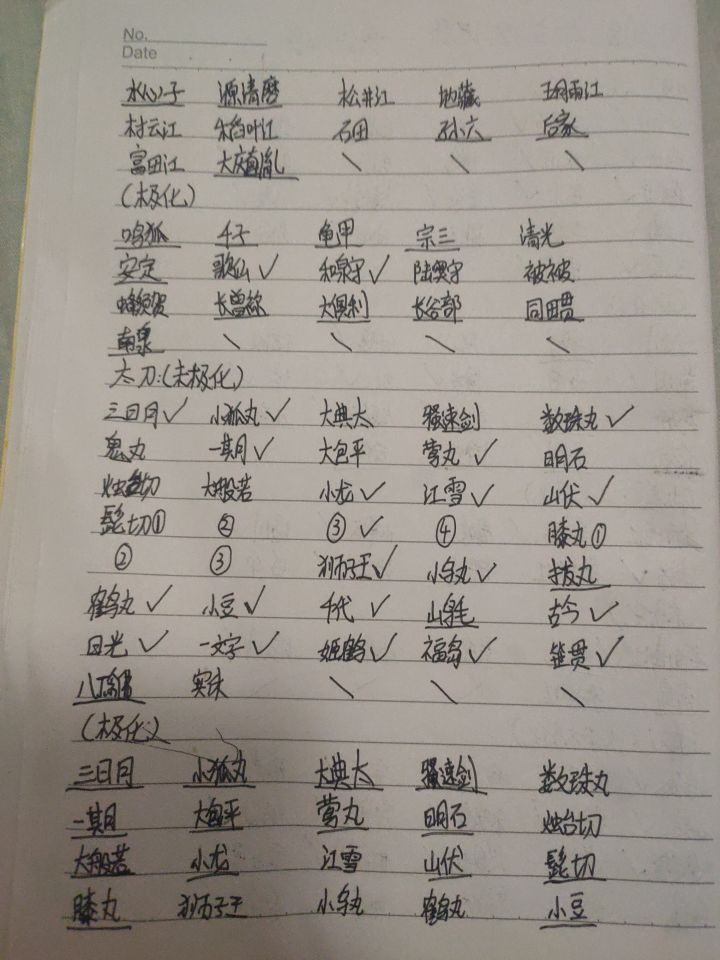 No.
Date
水心子 源清磨 松井江 地藏 五月雨江
村云江 稻叶江 石田 孙六 后家
富田江 大庆直胤 \ \ \
(极化)
鸣狐 千子 龟甲 宗三 清光
安定 歌仙✓ 和泉守✓ 陆奥守 被被
蜂须贺 长曾祢 大俱利 长谷部 同田贯
南泉 \ \ \ \
太刀:(未极化)
三日月✓ 小狐丸✓ 大典太 骚速剑 数珠丸✓
鬼丸 一期✓ 大包平 莺丸✓ 明石
烛台切 大般若 小龙✓ 江雪✓ 山伏✓
髭切① ② ③✓ ④ 膝丸①
② ③ 狮子王✓ 小乌丸✓ 拔丸
鹤丸✓ 小豆✓ 千代✓ 山鸟毛 古今✓
日光✓ 一文字✓ 姬鹤✓ 福岛✓ 笹贯✓
八丁 实休 \ \ \
(极化:)
三日月 小狐丸 大典太 骚速剑 数珠丸
一期 大包平 莺丸 明石 烛台切
大般若 小龙 江雪 山伏 髭切
膝丸 狮子王 小乌丸 鹤丸 小豆